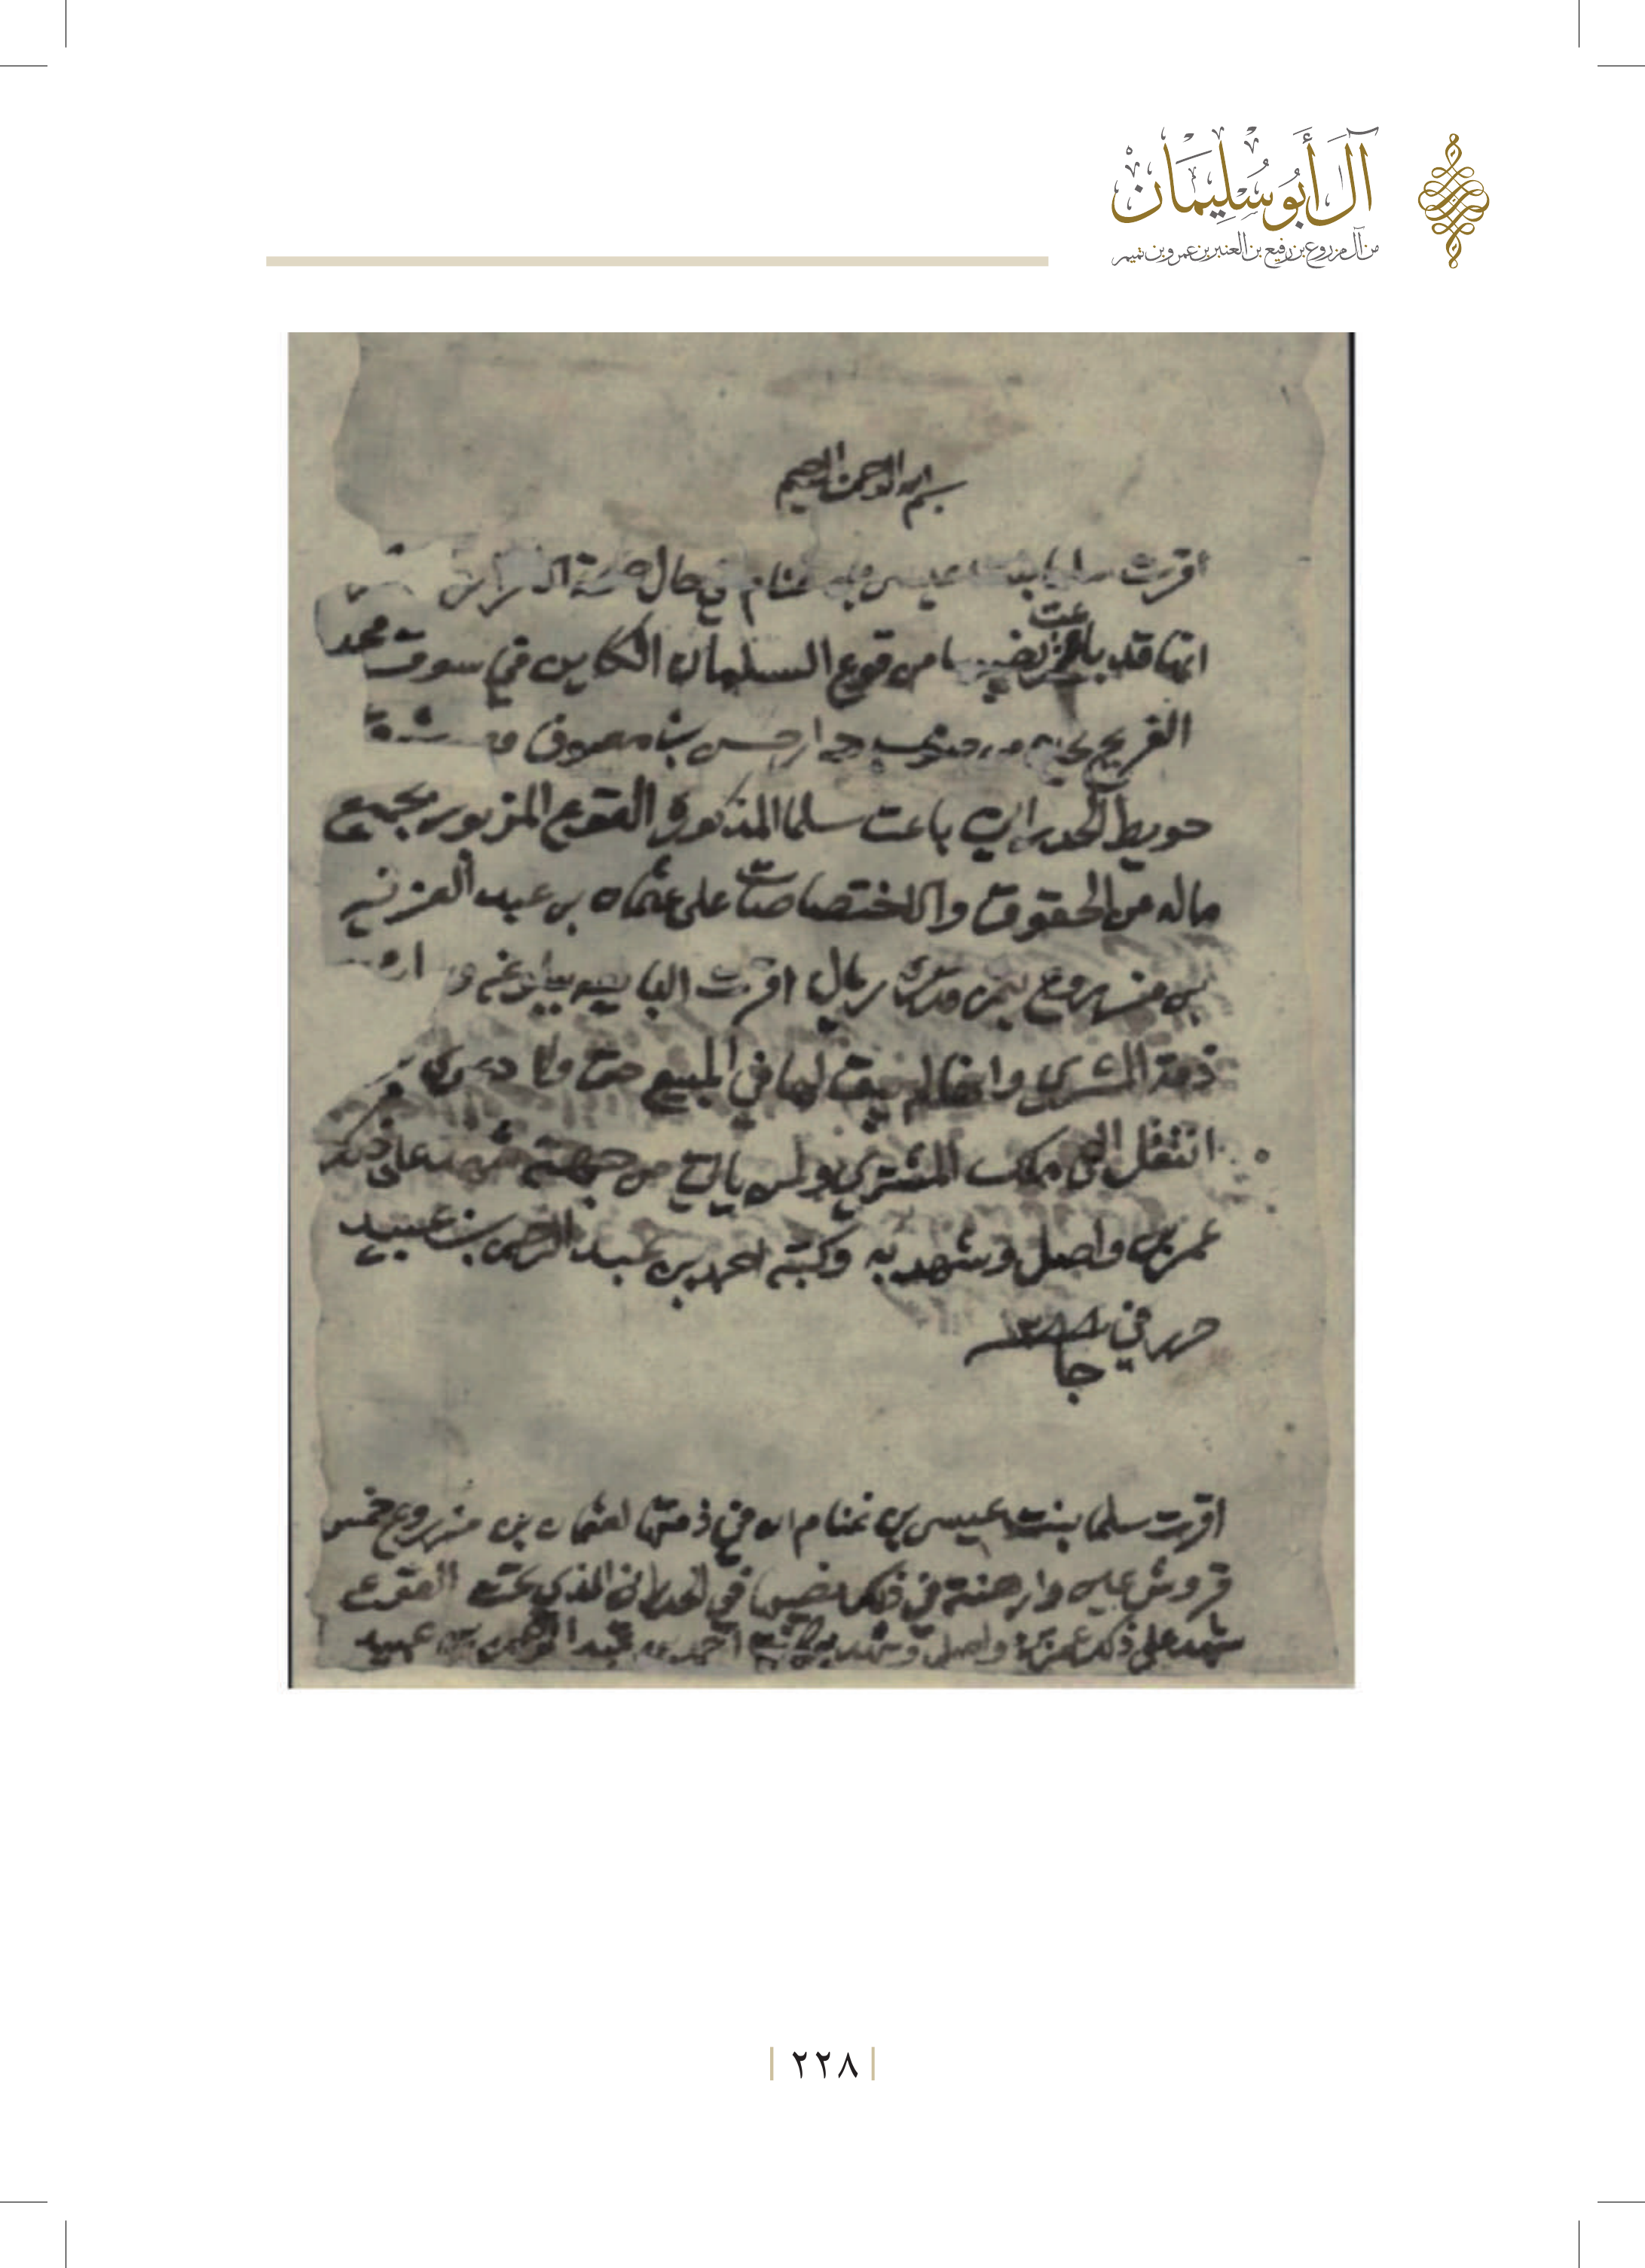 آل أبو سليمان
من آل مزروع بن رفيع بن العنبر بن عمرو بن تميم
بسم الله الرحمن الرحيم
أقرت سلما بنت عيسى بن غنام في حال صحة
انها قد باعت نصيبها من قوع السلمان الكاين في سوق محمد
الفريح من جنوب جدار حسن بن معيوف
حويط الحدراني باعت سلما المذكورة القوع المزبور بجميع
ماله من الحقوق والاختصاصات على عثمان بن عبد العزيز
بن مزروع بثمن قدره ريال اقرت البايعه
ذمة المشتري وانها لم يبق لها في المبيع حق ولا دعوى
انتقل الى ملك المشتري من جهته شهد على ذلك
عمر بن واصل وشهد به وكتبه احمد بن عبد الرحمن بن عبيد
حرر في جا
اقرت سلما بنت عيسى بن غنام ان في ذمتها لعثمان بن مزروع خمس
قروش وارهنته في ذلك نصيبها في الحدراني الذي تحت
شهد على ذلك عمر بن واصل وشهد به وكتبه احمد بن عبد الرحمن بن عبيد
٢٢٨